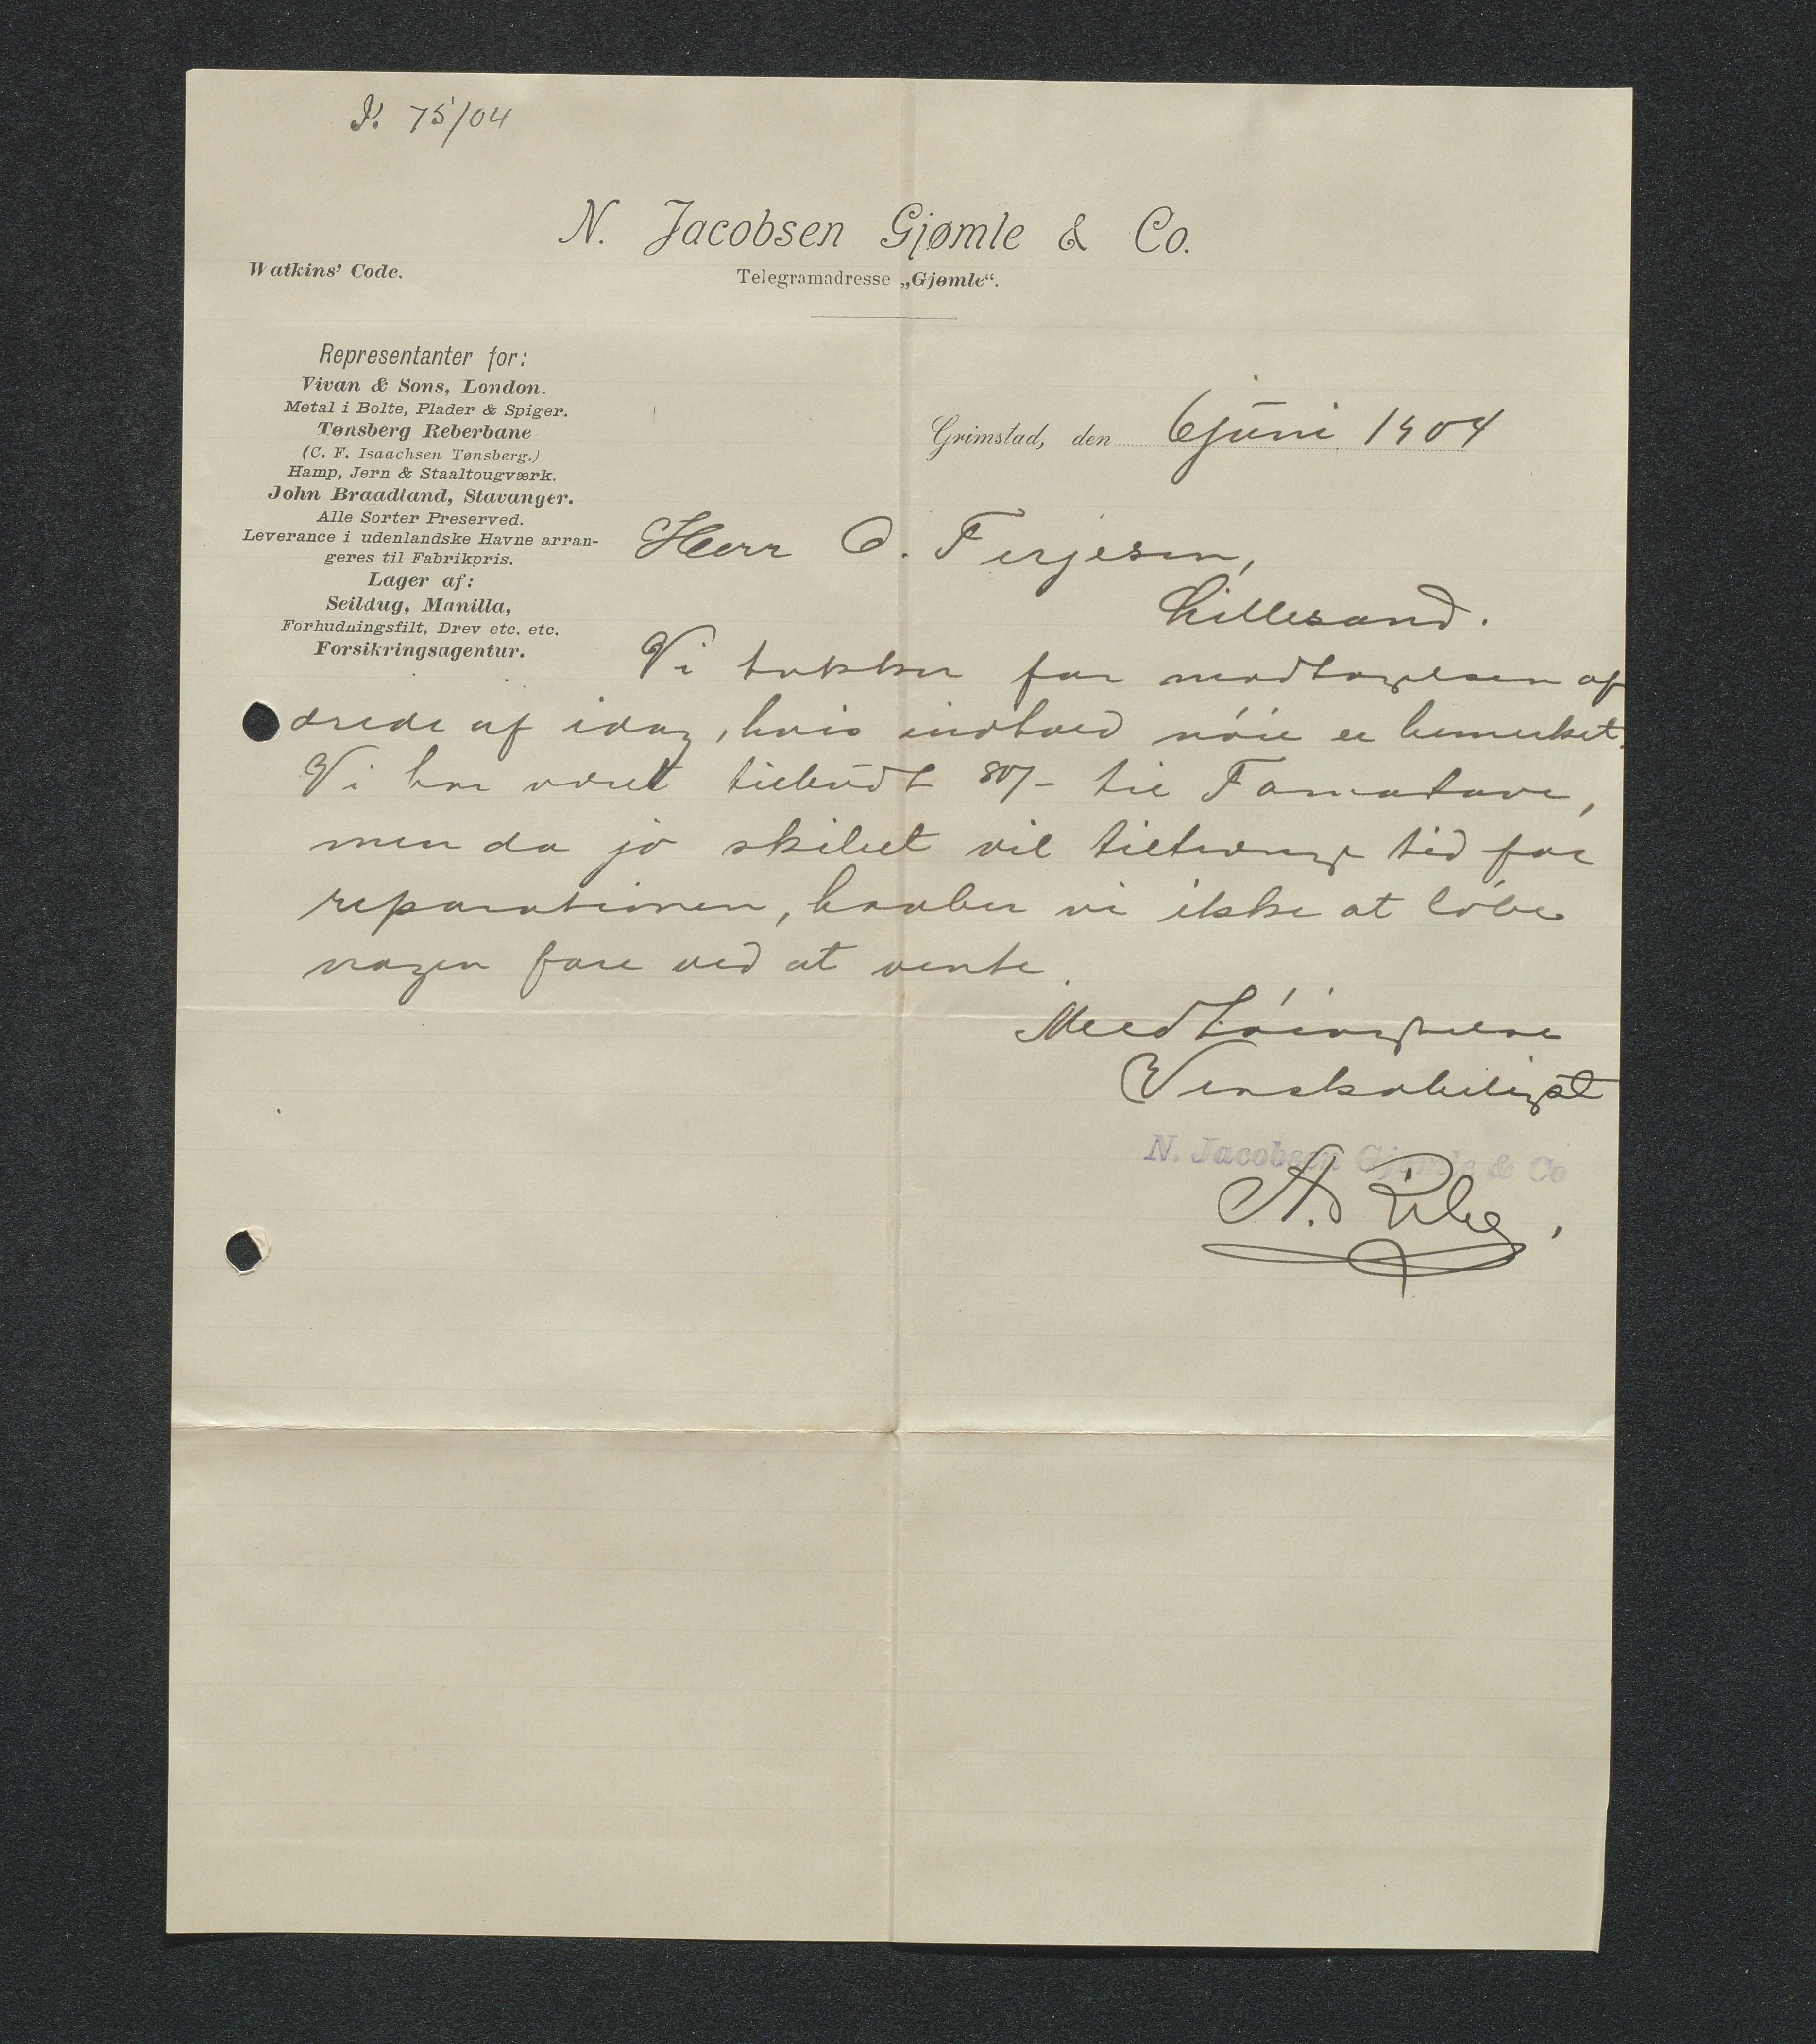 J. 75/04
N. Jacobsen Gjømle & Co.
Watkins' Code.
Telegramadresse „Gjømle“.
Representanter for:
Vivan & Sons, London.
Metal i Bolte, Plader & Spiger.
Tønsberg Reberbane
(C. F. Isaachsen Tønsberg.)
Hamp, Jern & Staaltougværk.
John Braadland, Stavanger.
Alle Sorter Preserved.
Leverance i udenlandske Havne arran-
geres til Fabrikpris.
Lager af:
Seildug, Manilla,
Forhudningsfilt, Drev etc. etc.
Forsikringsagentur.
Grimstad, den 6 juni 1904
Herr O. Terjesen,
Lillesand.
Vi takker for modtagelsen af
ærede af idag, hvis indhold nöie er bemerket.
Vi har været tilbudt 80/- til Tamatave,
men da jo skibet vil tiltrænge tid for
reparationen, haaber vi ikke at löbe
nogen fare ved at vente.
Med höiagtelse
Venskabeligst
N. Jacobsen Gjømle & Co